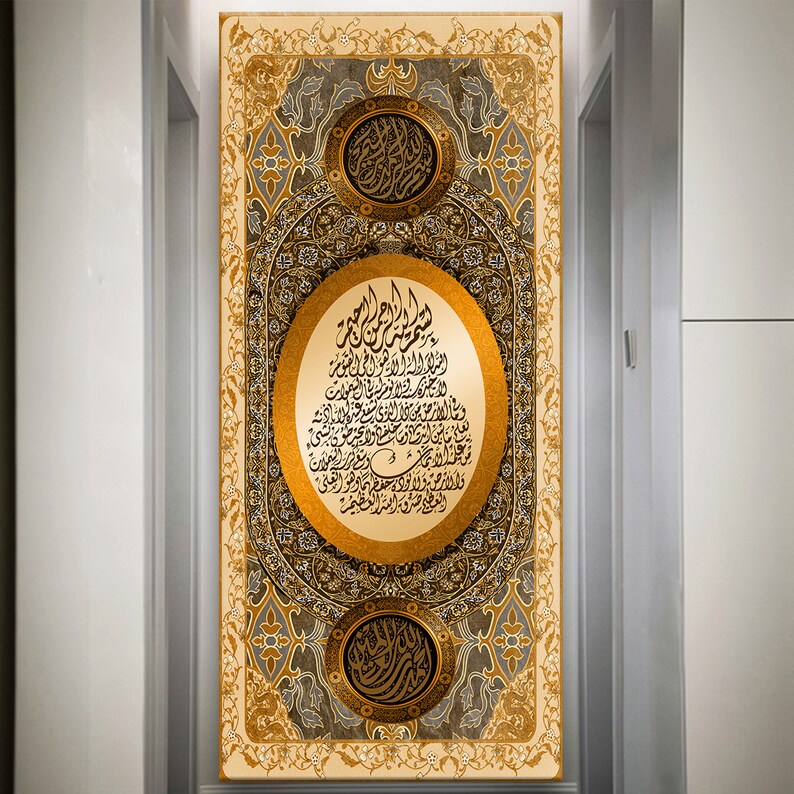 بسم الله الرحمن الرحيم
بسم الله الرحمن الرحيم
الله لا إله إلا هو الحي القيوم
لا تأخذه سنة ولا نوم له ما في السموات
وما في الأرض من ذا الذي يشفع عنده إلا بإذنه
يعلم ما بين أيديهم وما خلفهم ولا يحيطون بشيء
من علمه إلا بما شاء وسع كرسيه السموات
والأرض ولا يؤوده حفظهما وهو العلي
العظيم صدق الله العظيم
صدق الله العظيم